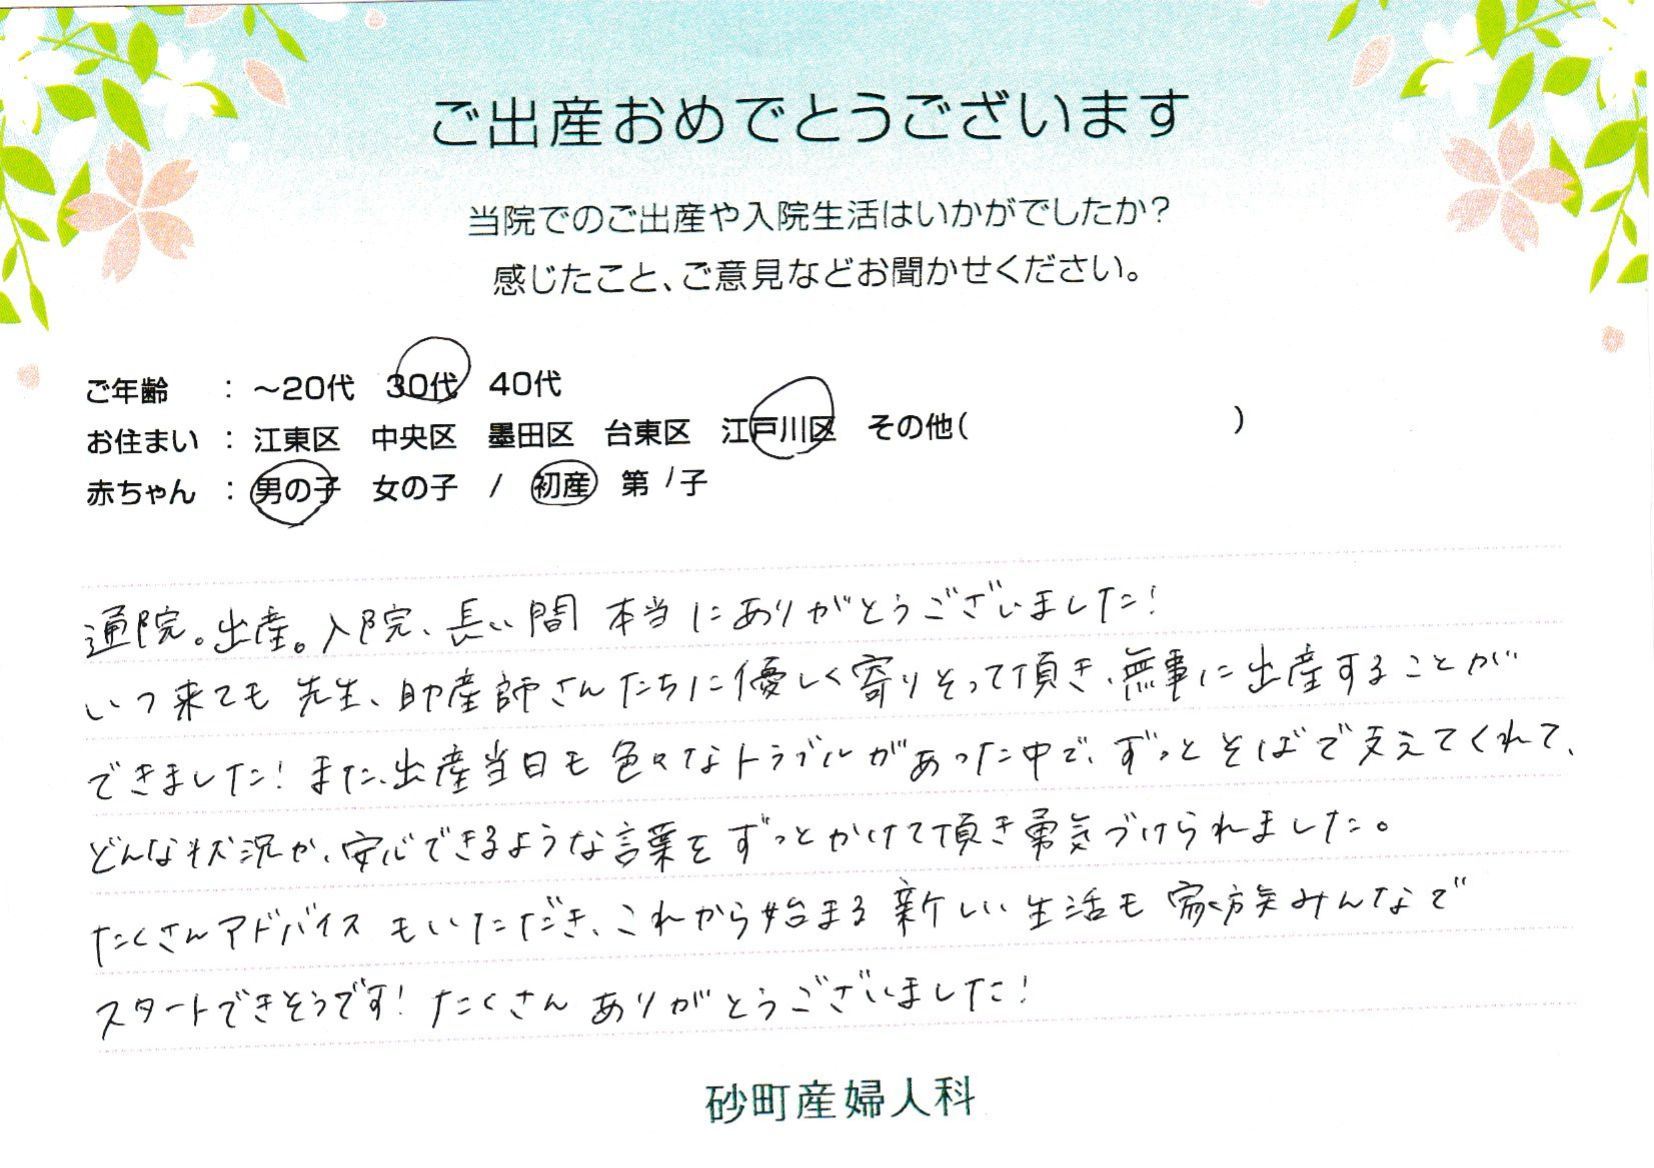 ご出産おめでとうございます
当院でのご出産や入院生活はいかがでしたか?
感じたこと、ご意見などお聞かせください。
ご年齢 : ~20代 30代 40代
お住まい : 江東区 中央区 墨田区 台東区 江戸川区 その他( )
赤ちゃん : 男の子 女の子 / 初産 第1子
通院。出産。入院、長い間 本当にありがとうございました!
いつ来ても 先生、助産師さんたちに優しく寄りそって頂き、無事に出産することが
できました! また、出産当日も色々なトラブルがあった中で、ずっとそばで支えてくれて、
どんな状況か、安心できるような言葉をずっとかけて頂き勇気づけられました。
たくさんアドバイスもいただき、これから始まる新しい生活も家族みんなで
スタートできそうです! たくさん ありがとうございました!
砂町産婦人科